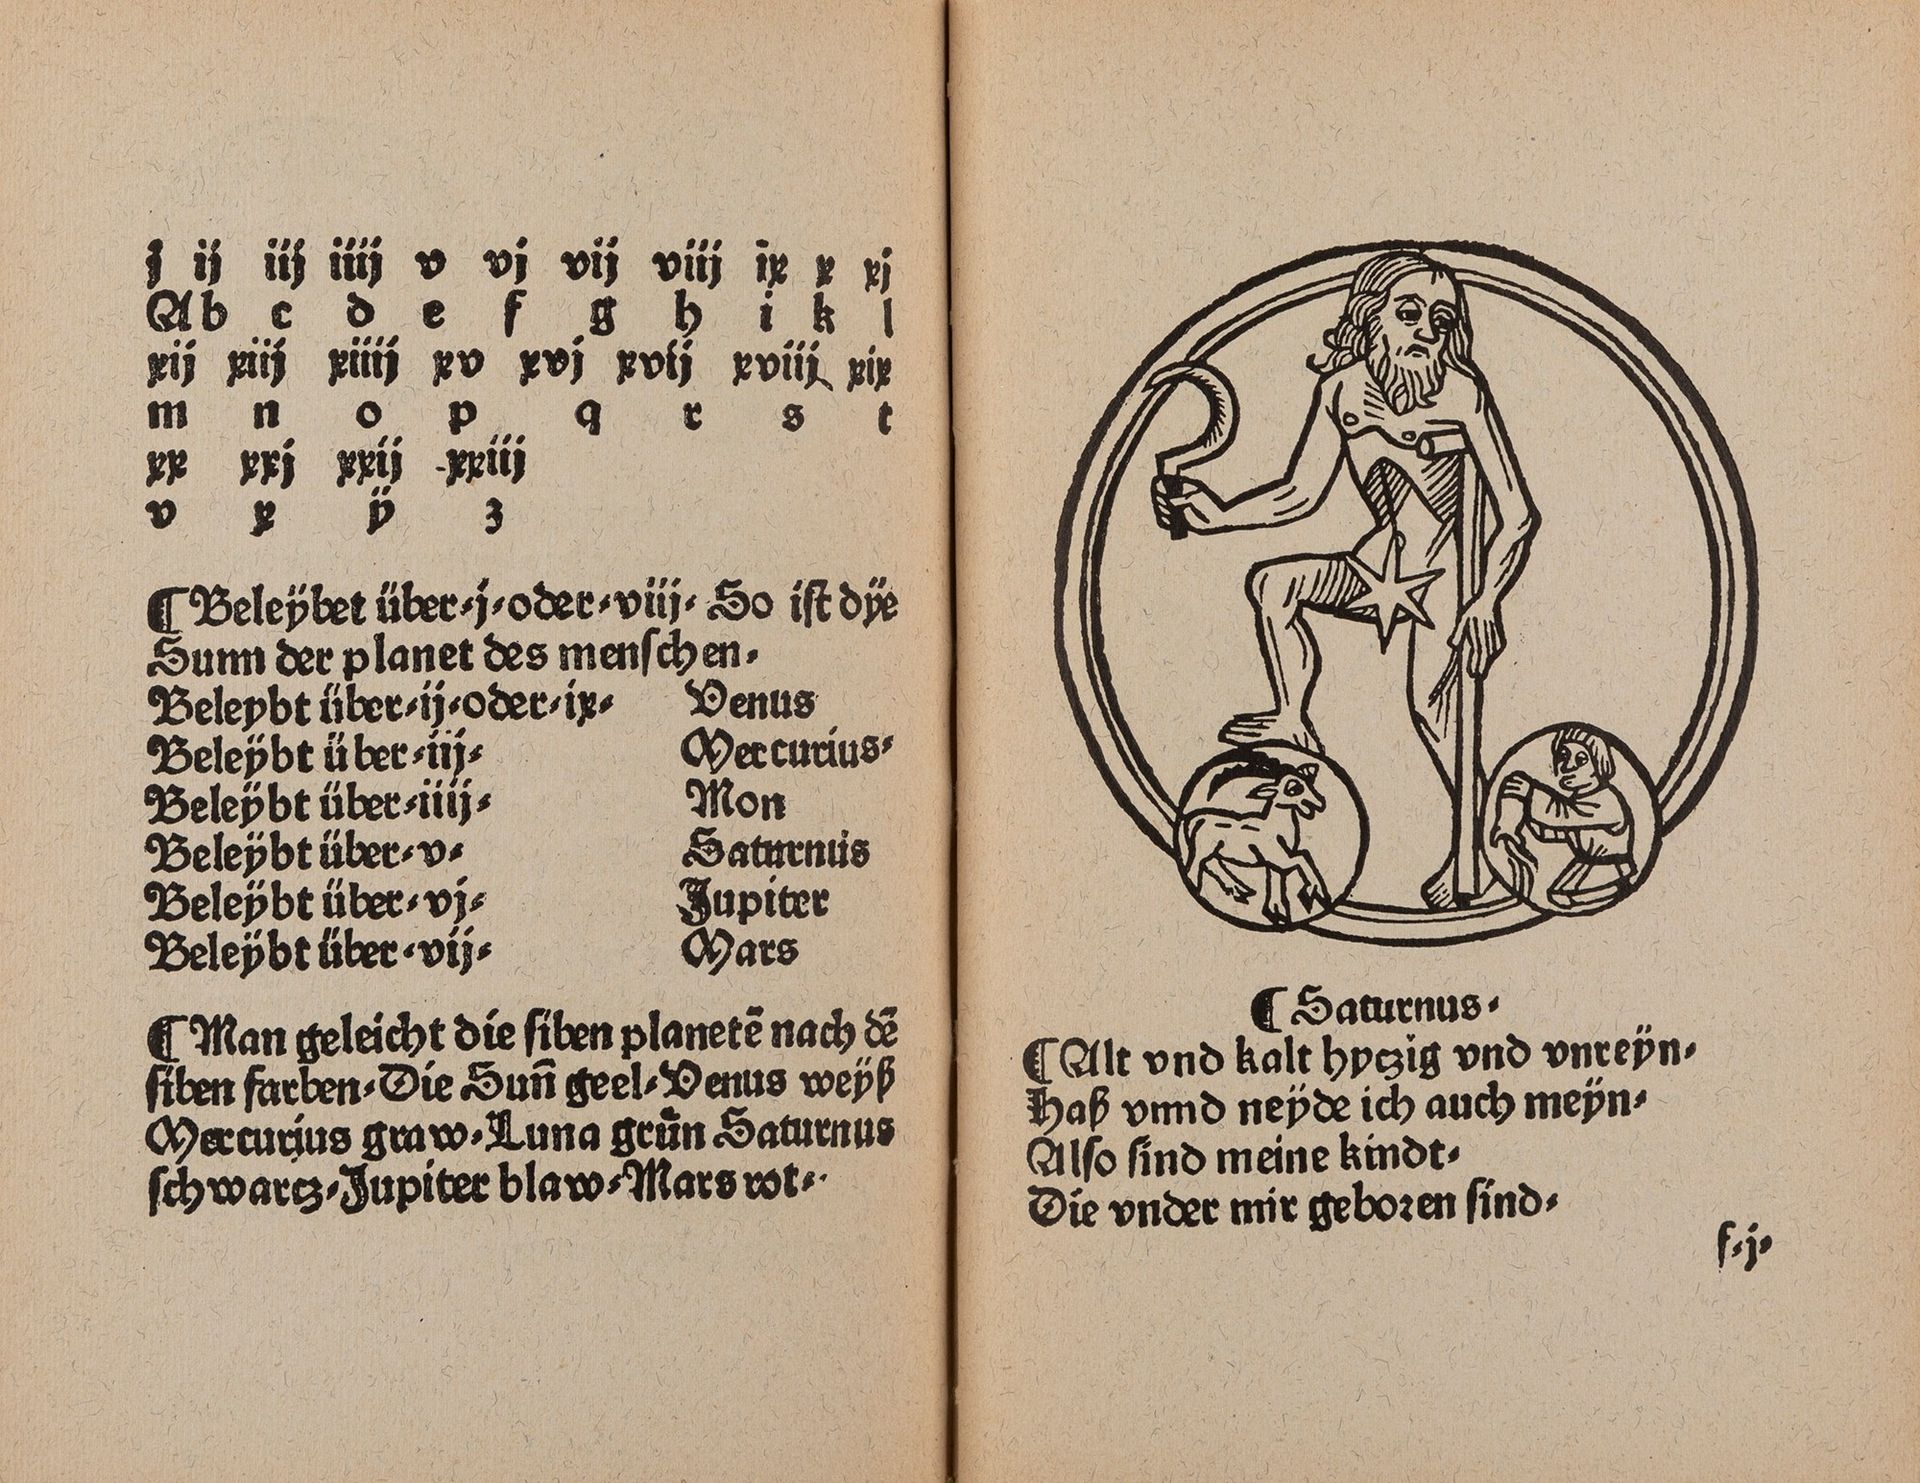 j ij iij iiij v vj vij viij ix x xj
A b c d e f g h i k l
xij xiij xiiij xv xvj xvij xviij xix
m n o p q r s t
xx xxj xxij xxiij
v x ÿ z
¶ Beleÿbet über · j · oder · viij · So ist dÿe
Sunn der planet des menschen ·
Beleybt über · ij · oder · ix · Venus
Beleÿbt über · iij · Mercurius ·
Beleÿbt über · iiij · Mon
Beleÿbt über · v · Saturnus
Beleÿbt über · vj · Jupiter
Beleÿbt über · vij · Mars
¶ Man geleicht die siben planetē nach dē
siben farben · Die Sun̄ geel · Venus weÿß
Mercurius graw · Luna grůn Saturnus
schwartz · Jupiter blaw · Mars rot ·
¶ Saturnus ·
¶ Alt vnd kalt hytzig vnd vnreÿn ·
Haß vnnd neÿde ich auch meÿn ·
Also sind meine kindt ·
Die vnder mir geboren sind ·
f · j ·